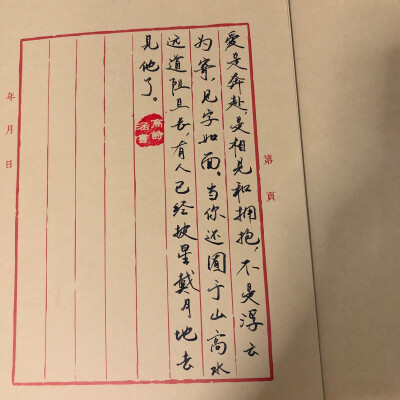 第 頁
愛是奔赴是相见和拥抱,不是浮云
为寄,见字如面。当你还囿于山高水
远道阻且长,有人已经披星戴月地去
见他了。
年 月 日